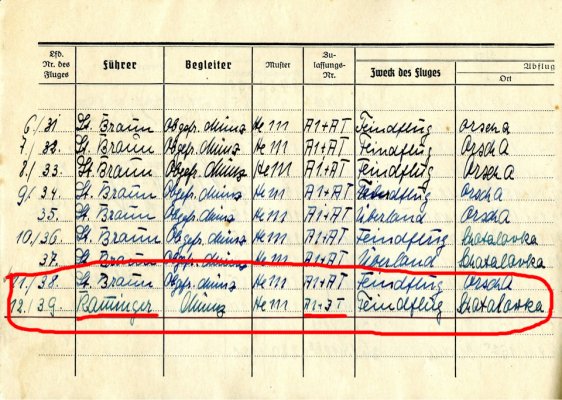 Lfd. Nr. des Fluges Führer Begleiter Muster Zulassungs-Nr. Zweck des Fluges Abflug
Ort
6./31. Lt. Braun Obgefr. Münz He 111 A1+AT Feindflug Orscha
7./32. Lt. Braun Obgefr. Münz He 111 A1+AT Feindflug Orscha
8./33. Lt. Braun Obgefr. Münz He 111 A1+AT Feindflug Orscha
9./34. Lt. Braun Obgefr. Münz He 111 A1+AT Feindflug Orscha
35. Lt. Braun Obgefr. Münz He 111 A1+AT Überland Orscha
10./36. Lt. Braun Obgefr. Münz He 111 A1+AT Feindflug Schatalovka
37. Lt. Braun Obgefr. Münz He 111 A1+AT Überland Schatalovka
11./38. Lt. Braun Obgefr. Münz He 111 A1+AT Feindflug Orscha
12./39. Münz He 111 A1+3T Feindflug Schatalovka